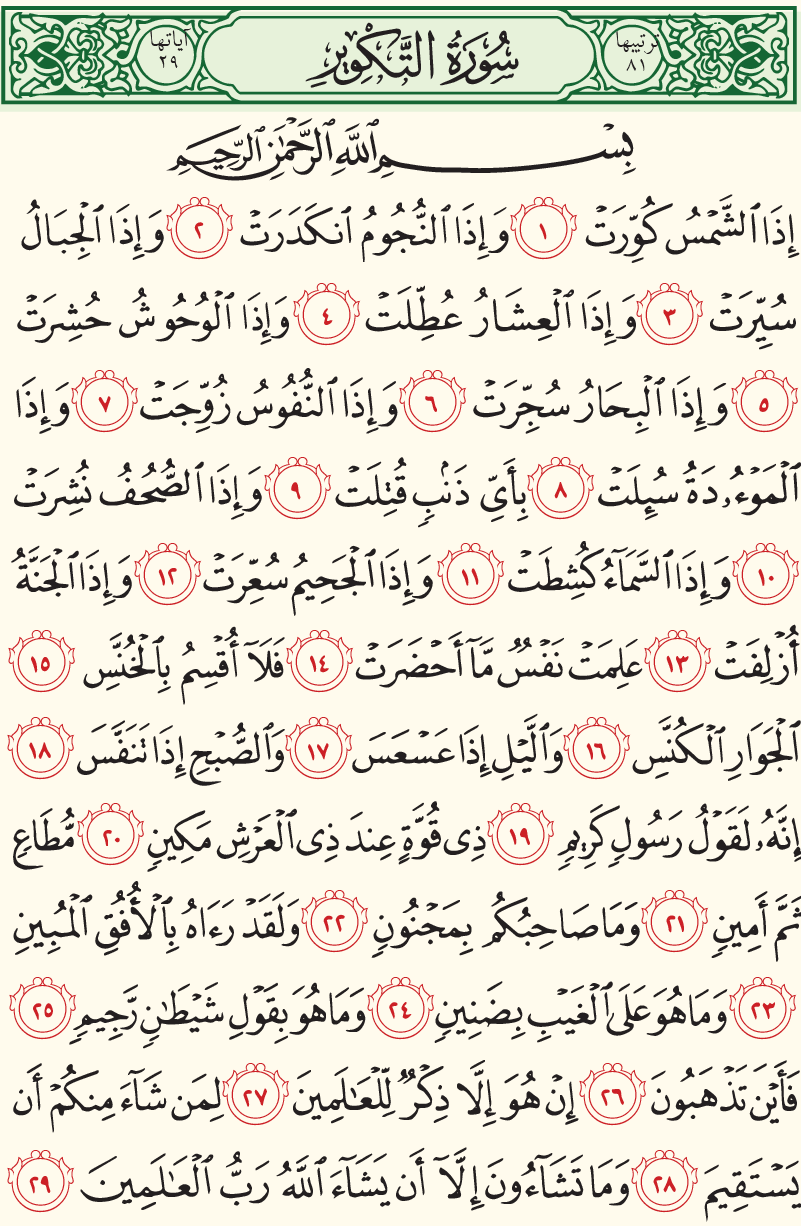 ترتيبها ٨١ سُورَةُ التَّكْوِيرِ آياتها ٢٩
بِسْمِ ٱللَّهِ ٱلرَّحْمَٰنِ ٱلرَّحِيمِ
إِذَا ٱلشَّمْسُ كُوِّرَتْ ١ وَإِذَا ٱلنُّجُومُ ٱنكَدَرَتْ ٢ وَإِذَا ٱلْجِبَالُ
سُيِّرَتْ ٣ وَإِذَا ٱلْعِشَارُ عُطِّلَتْ ٤ وَإِذَا ٱلْوُحُوشُ حُشِرَتْ
٥ وَإِذَا ٱلْبِحَارُ سُجِّرَتْ ٦ وَإِذَا ٱلنُّفُوسُ زُوِّجَتْ ٧ وَإِذَا
ٱلْمَوْءُۥدَةُ سُئِلَتْ ٨ بِأَىِّ ذَنۢبٍ قُتِلَتْ ٩ وَإِذَا ٱلصُّحُفُ نُشِرَتْ
١٠ وَإِذَا ٱلسَّمَآءُ كُشِطَتْ ١١ وَإِذَا ٱلْجَحِيمُ سُعِّرَتْ ١٢ وَإِذَا ٱلْجَنَّةُ
أُزْلِفَتْ ١٣ عَلِمَتْ نَفْسٌ مَّآ أَحْضَرَتْ ١٤ فَلَآ أُقْسِمُ بِٱلْخُنَّسِ ١٥
ٱلْجَوَارِ ٱلْكُنَّسِ ١٦ وَٱلَّيْلِ إِذَا عَسْعَسَ ١٧ وَٱلصُّبْحِ إِذَا تَنَفَّسَ ١٨
إِنَّهُۥ لَقَوْلُ رَسُولٍ كَرِيمٍ ١٩ ذِى قُوَّةٍ عِندَ ذِى ٱلْعَرْشِ مَكِينٍ ٢٠ مُّطَاعٍ
ثَمَّ أَمِينٍ ٢١ وَمَا صَاحِبُكُم بِمَجْنُونٍ ٢٢ وَلَقَدْ رَءَاهُ بِٱلْأُفُقِ ٱلْمُبِينِ
٢٣ وَمَا هُوَ عَلَى ٱلْغَيْبِ بِضَنِينٍ ٢٤ وَمَا هُوَ بِقَوْلِ شَيْطَٰنٍ رَّجِيمٍ ٢٥
فَأَيْنَ تَذْهَبُونَ ٢٦ إِنْ هُوَ إِلَّا ذِكْرٌ لِّلْعَٰلَمِينَ ٢٧ لِمَن شَآءَ مِنكُمْ أَن
يَسْتَقِيمَ ٢٨ وَمَا تَشَآءُونَ إِلَّآ أَن يَشَآءَ ٱللَّهُ رَبُّ ٱلْعَٰلَمِينَ ٢٩